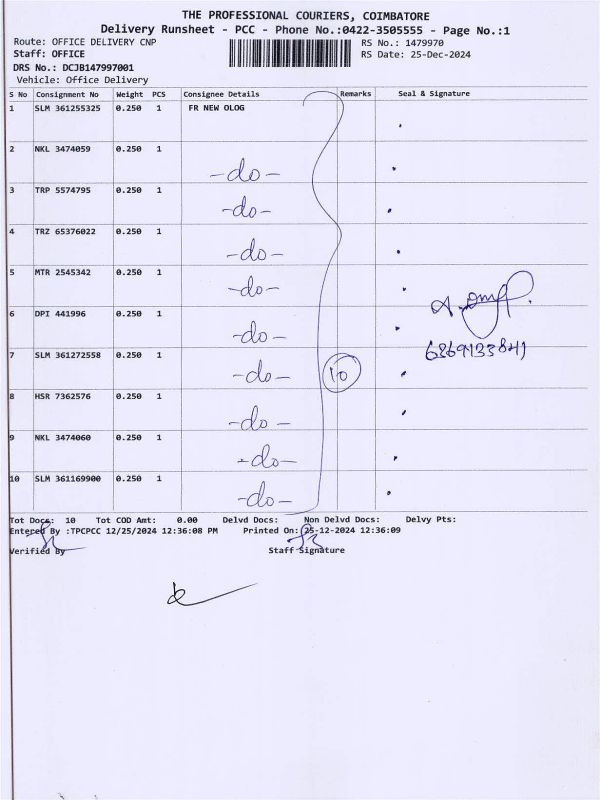 THE PROFESSIONAL COURIERS, COIMBATORE
Delivery Runsheet - PCC - Phone No.:0422-3505555 - Page No.:1
Route: OFFICE DELIVERY CNP
RS No.: 1479970
Staff: OFFICE
RS Date: 25-Dec-2024
DRS No.: DCJB147997001
Vehicle: Office Delivery
S No Consignment No Weight PCS Consignee Details Remarks Seal & Signature
1 SLM 361255325 0.250 1 FR NEW OLOG
2 NKL 3474059 0.250 1 -do-
3 TRP 5574795 0.250 1 -do-
4 TRZ 65376022 0.250 1 -do-
5 MTR 2545342 0.250 1 -do-
6 DPI 441996 0.250 1 -do-
6369133841
7 SLM 361272558 0.250 1 -do- 10
8 HSR 7362576 0.250 1 -do-
9 NKL 3474060 0.250 1 -do-
10 SLM 361169900 0.250 1 -do-
Tot Docs: 10 Tot COD Amt: 0.00 Delvd Docs: Non Delvd Docs: Delvy Pts:
Entered By :TPCPCC 12/25/2024 12:36:08 PM Printed On: 25-12-2024 12:36:09
Verified By Staff Signature